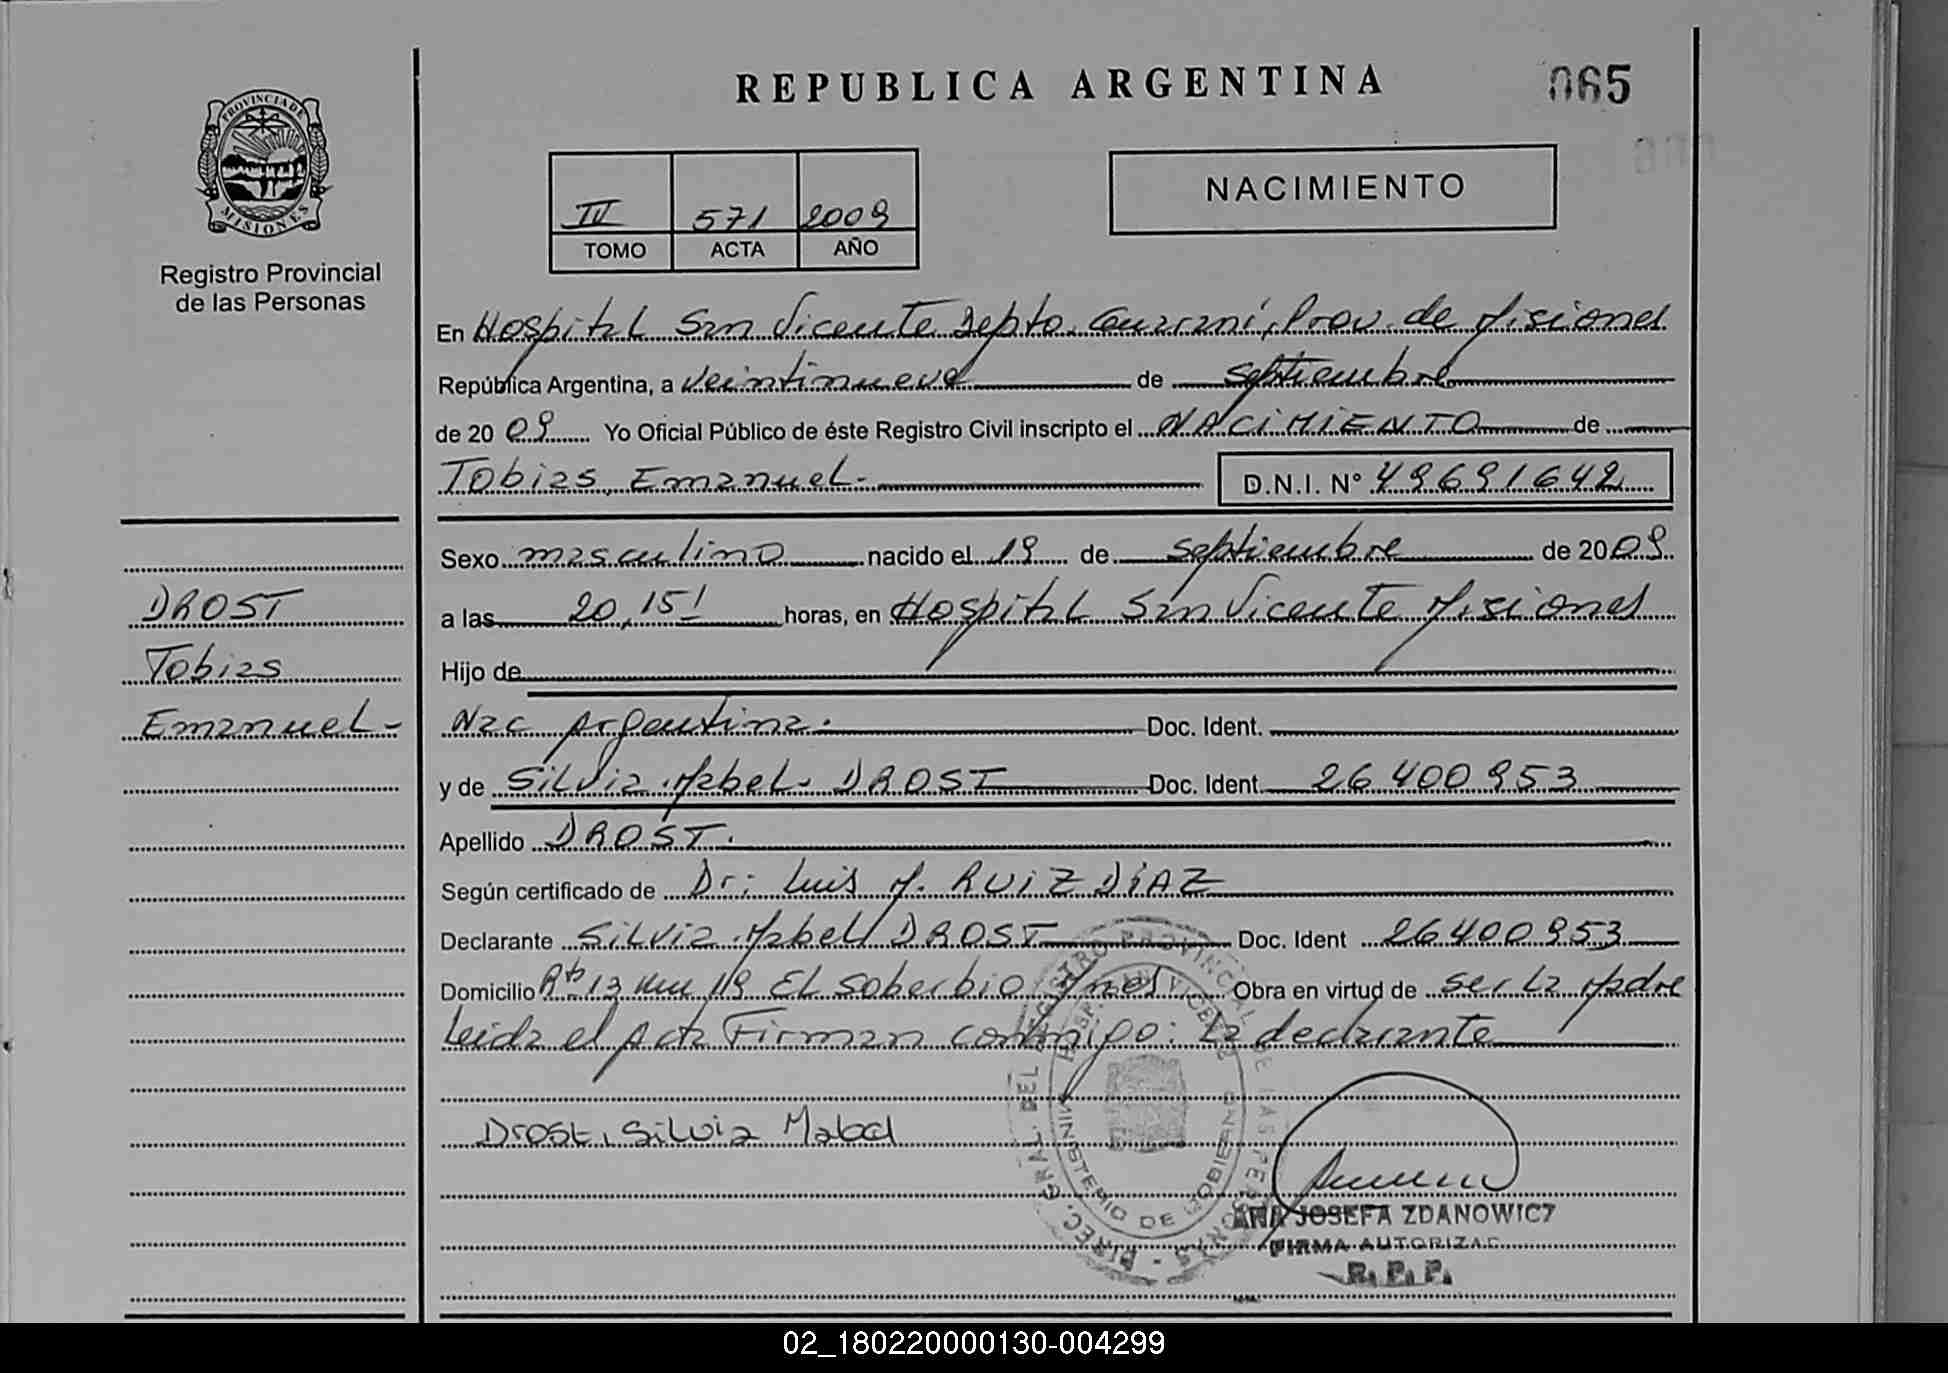 REPUBLICA ARGENTINA
065
PROVINCIA DE
MISIONES
Registro Provincial
de las Personas
IV 571 2009
TOMO ACTA AÑO
NACIMIENTO
En Hospital San Vicente Depto. Guaraní, Prov. de Misiones
República Argentina, a veintinueve de septiembre
de 2009 Yo Oficial Público de éste Registro Civil inscripto el NACIMIENTO de
Tobias Emanuel.- D.N.I. N° 49691642
Sexo masculino nacido el 19 de septiembre de 2009
a las 20,15! horas, en Hospital San Vicente Misiones
Hijo de
Nac Argentina. Doc. Ident.
y de Silvia Mabel- DROST Doc. Ident. 26400953
Apellido DROST.
Según certificado de Dr: Luis M. RUIZ DÍAZ
Declarante Silvia Mabel DROST Doc. Ident 26400953
Domicilio Rta 13 km 19 El Soberbio Mnes Obra en virtud de ser la Madre
Leida el Acta Firman conmigo: la declarante
Drost, Silvia Mabel
DROST
Tobias
Emanuel-
DIREC. GRAL. DEL REGISTRO PROVINCIAL DE LAS PERSONAS
MINISTERIO DE GOBIERNO
ANA JOSEFA ZDANOWICZ
FIRMA AUTORIZAD
R. P. P.
02_180220000130-004299